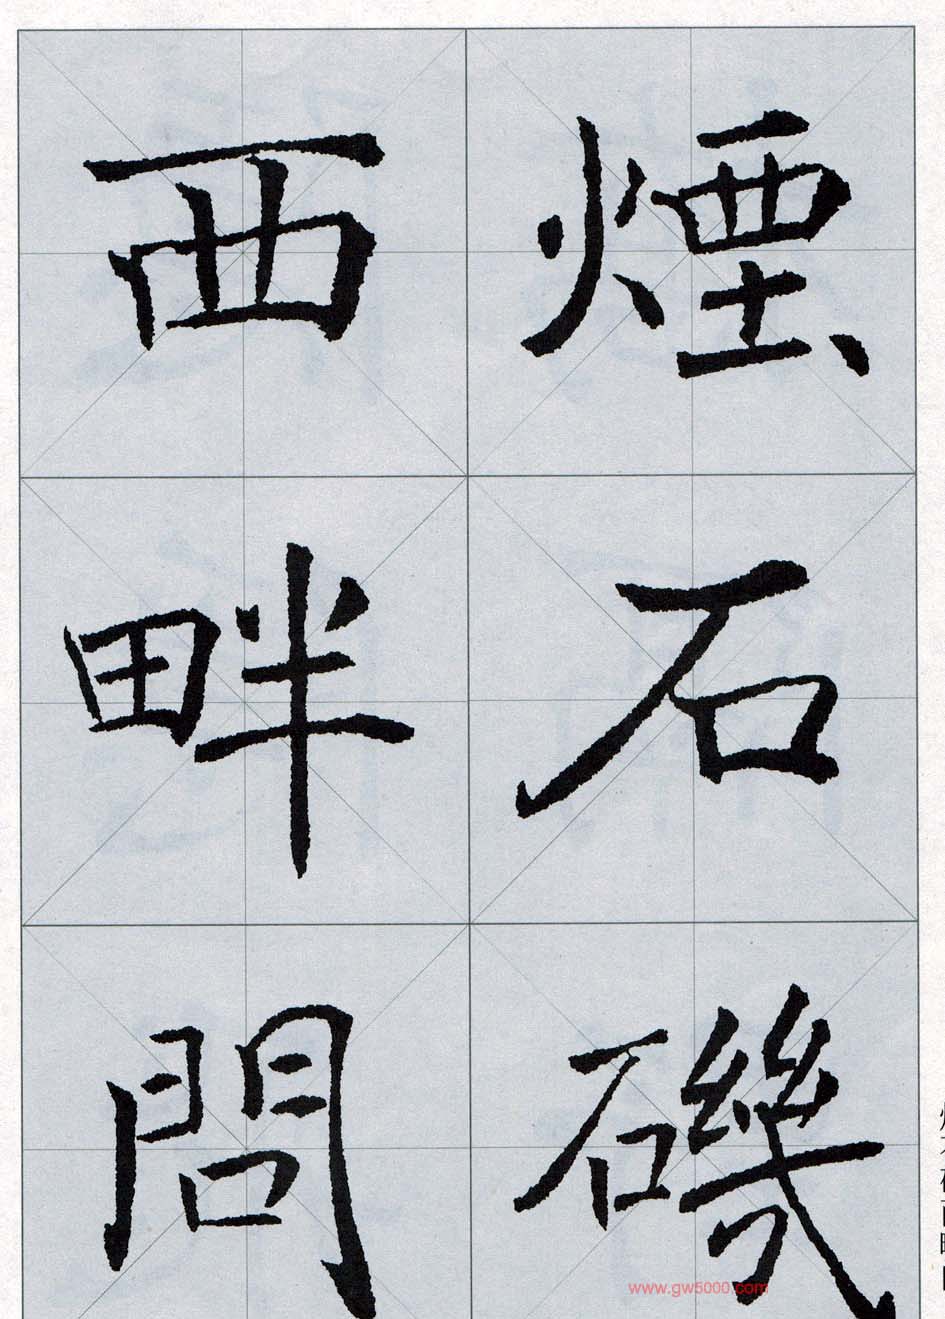 煙石磯
西畔問
www.gw5000.com